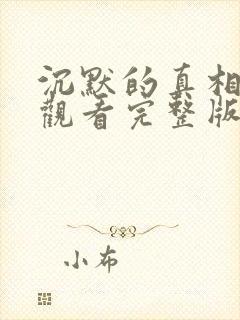 沉默的真相
觀看完整版
小布